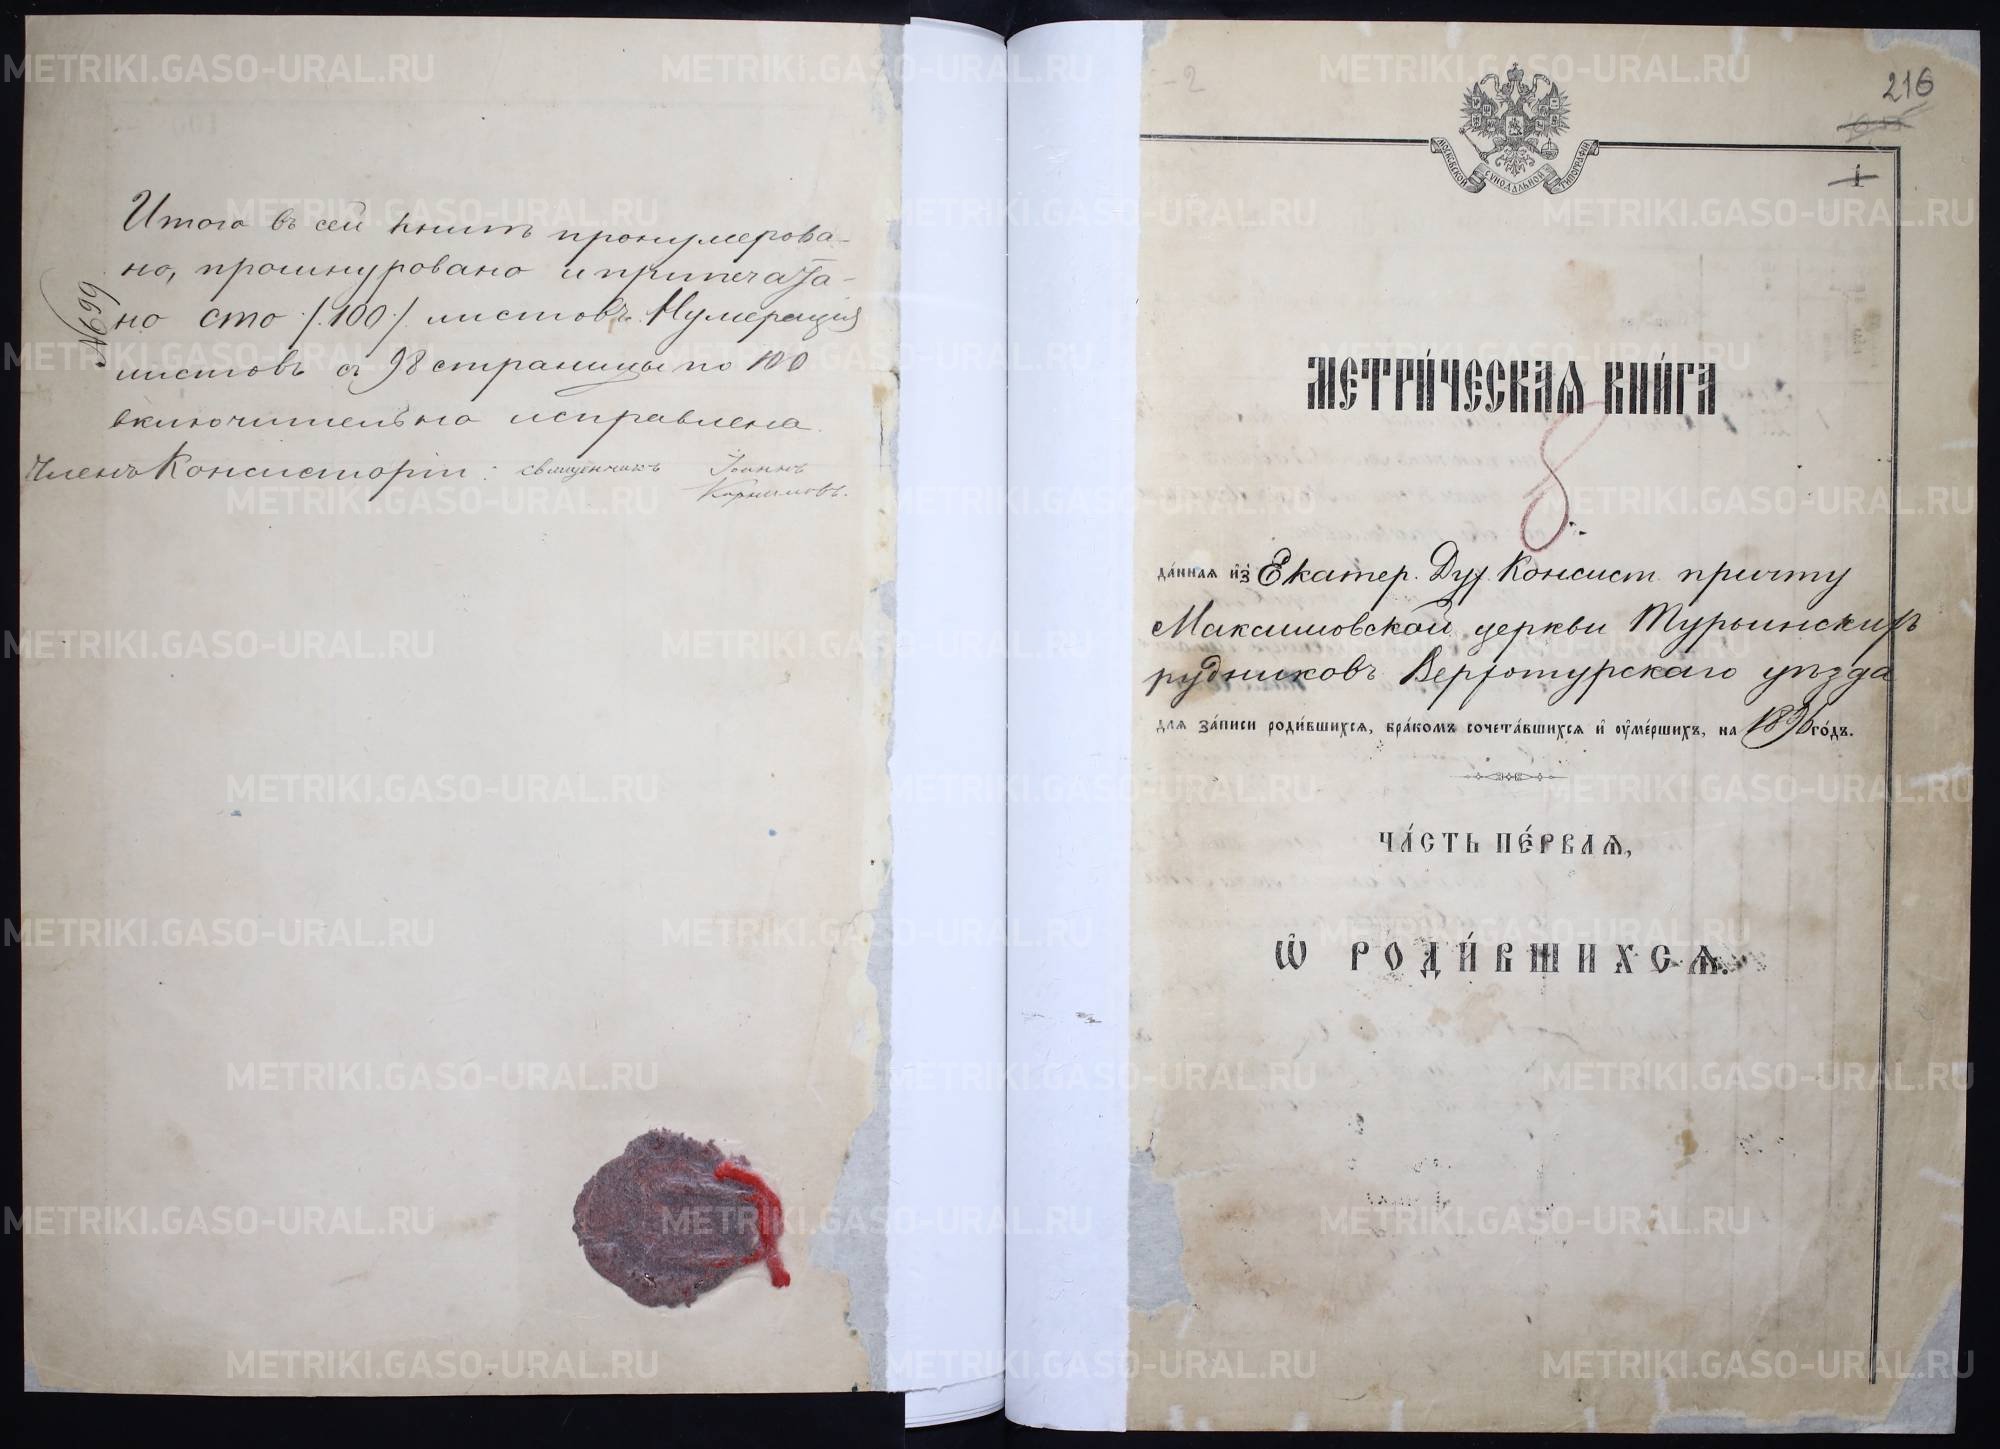 Итого въ сей книгѣ пронумерова-
но, прошнуровано и припечата-
но сто /.100./ листовъ. Нумерація
листовъ съ 98 страницы по 100
включительно исправлена.
Членъ Консисторіи: священникъ Іоаннъ
№699
216
1
МОСКОВСКОЙ СѴНОДАЛЬНОЙ ТИПОГРАФІИ
МЕТРИ́ЧЕСКАѦ КНИ́ГА
8
да́ннаѧ и҆з̾ Екатер. Дух. Консист. причту
Максимовской церкви Турьинскихъ
рудниковъ Верхотурскаго уѣзда
длѧ за́писи роди́вшихсѧ, бра́комъ сочета́вшихсѧ и҆ ᲂу҆ме́ршихъ, на 1896 го́дъ.
ЧА́СТЬ ПЕ́РВАѦ,
Ѽ РОДИ́ВШИХСѦ.
METRIKI.GASO-URAL.RU